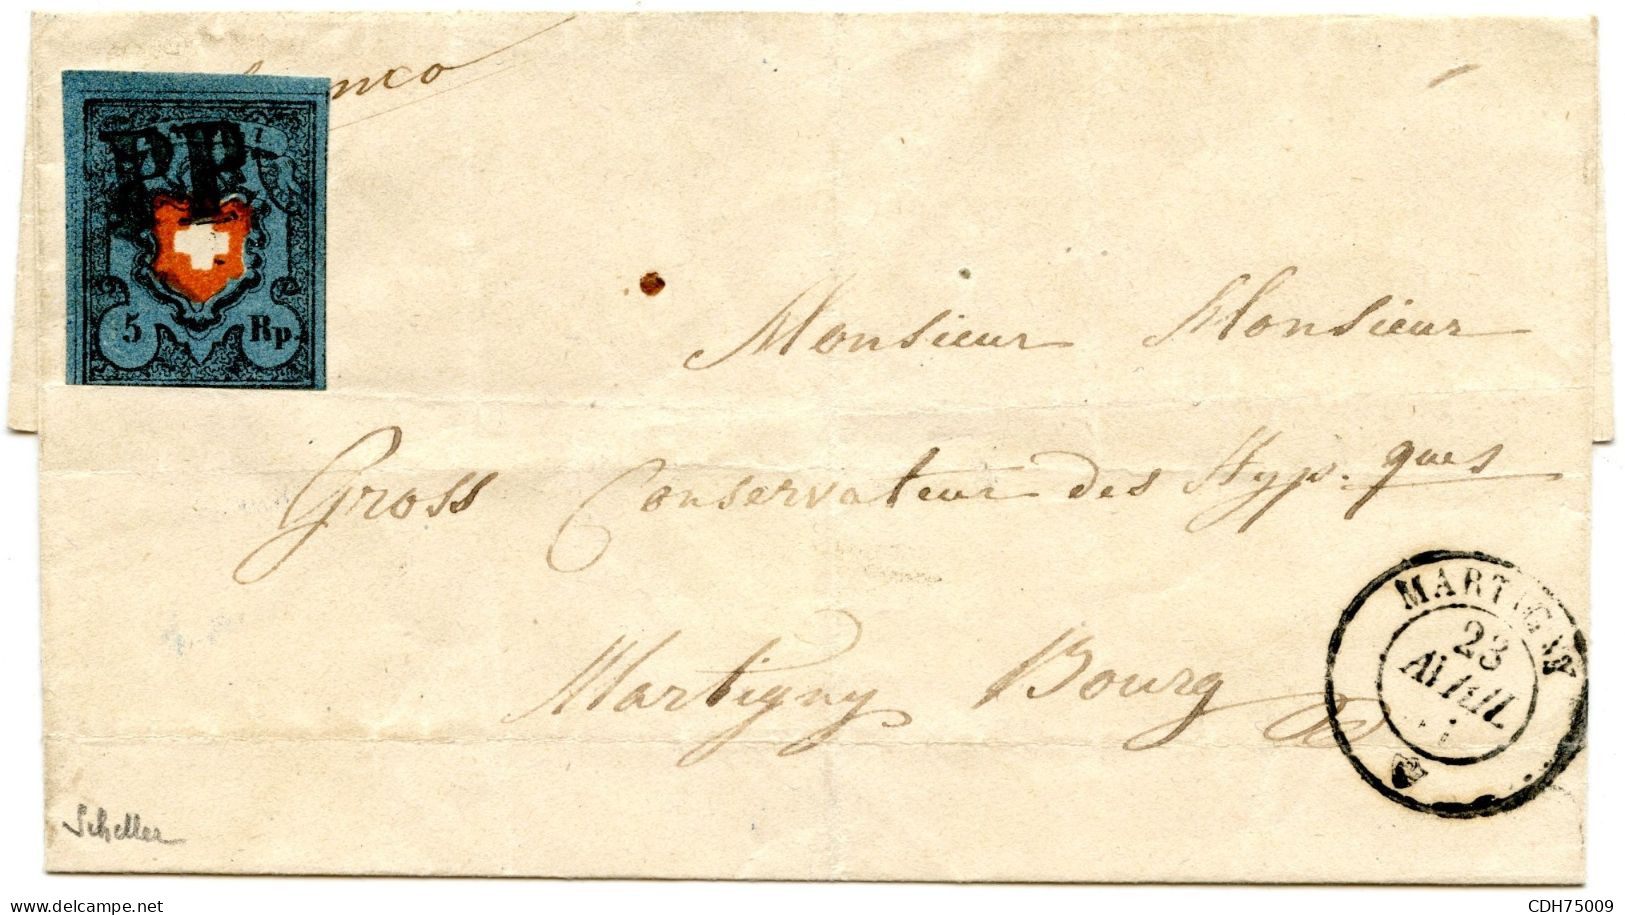 PP
5 Rp.
Monsieur Monsieur
Gross Conservateur des Hyp.ques
Martigny Bourg
MARTIGNY
23
AVRIL
Scheller
delcampe.net
CDH75009